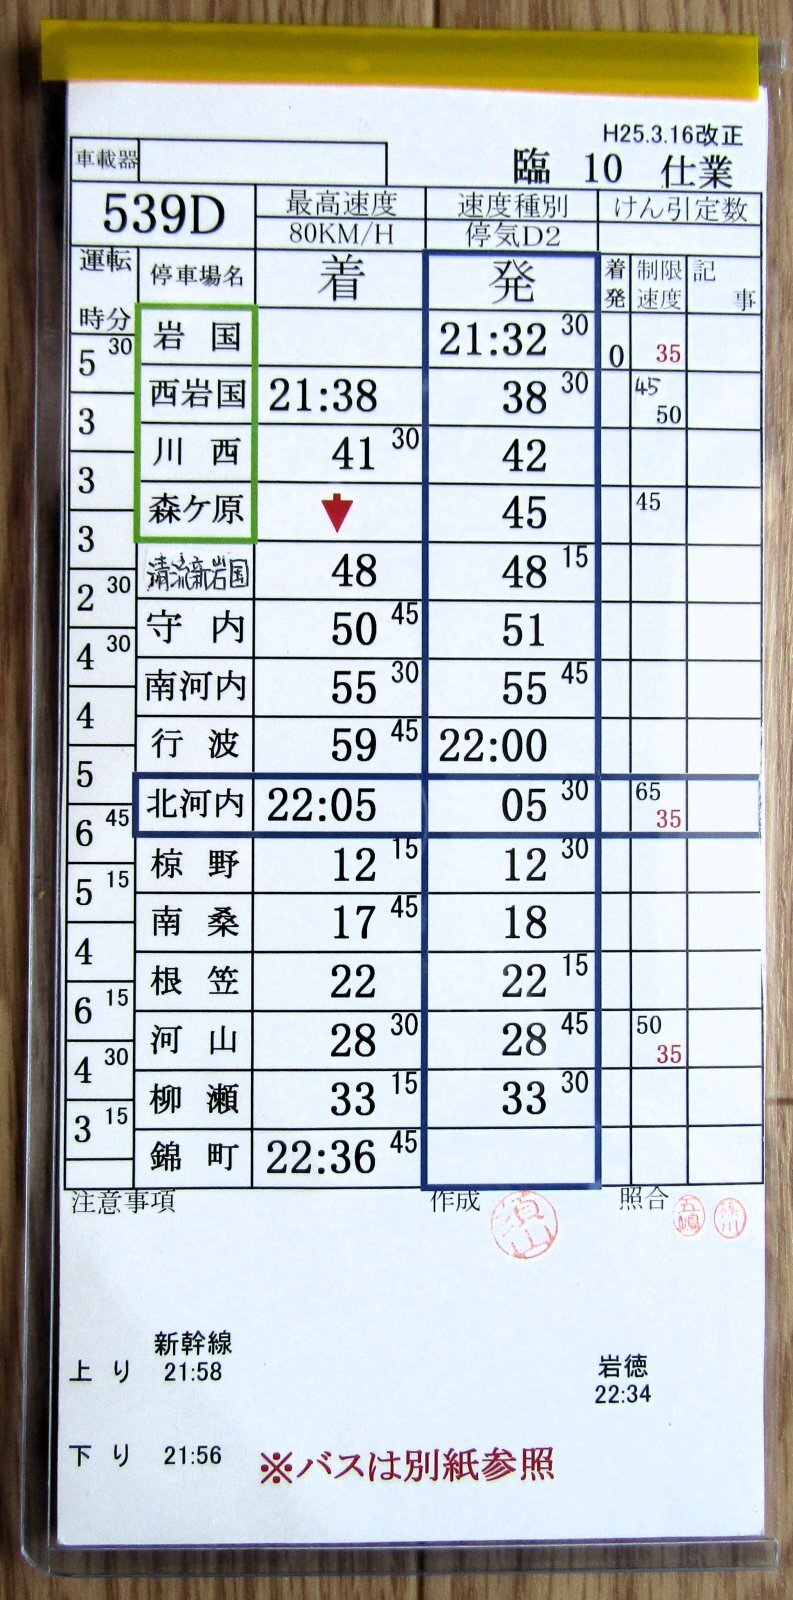 H25.3.16改正
車載器
臨 10 仕業
539D 最高速度 速度種別 けん引定数
80KM/H 停気D2
運転時分 停車場名 着 発 着発 制限速度 記事
岩国 21:32 30 0 35
5 30
西岩国 21:38 38 30 45 50
3
川西 41 30 42
3
森ケ原 45 45
3
清流新岩国 48 48 15
2 30
守内 50 45 51
4 30
南河内 55 30 55 45
4
行波 59 45 22:00
5
北河内 22:05 05 30 65 35
6 45
椋野 12 15 12 30
5 15
南桑 17 45 18
4
根笠 22 22 15
6 15
河山 28 30 28 45 50 35
4 30
柳瀬 33 15 33 30
3 15
錦町 22:36 45
注意事項 作成 照合
五嶋
新幹線
上り 21:58
岩徳
22:34
下り 21:56
※バスは別紙参照